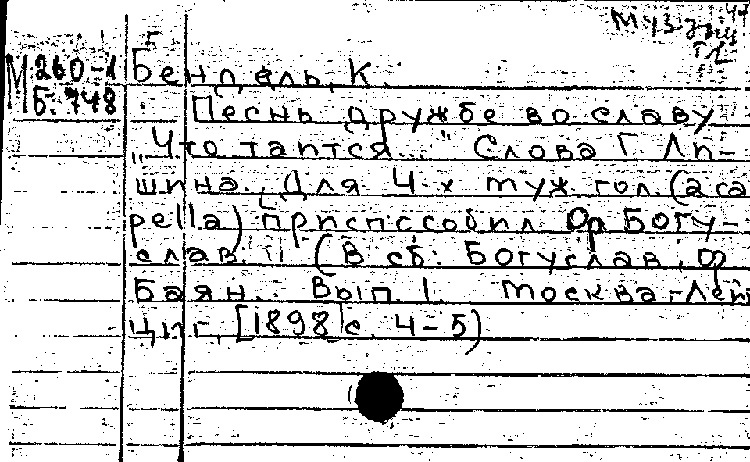 44
Муз
М260-1 Бендель, К.
Б. 748 Песнь дружбе во славу
„Что таится..." Слова Г. Ли-
шина. Для 4-х муж. гол. (a ca
pella) приспособил Фр Богу-
слав. (В сб: Богуслав, Ф
Баян.. Вып. 1. Москва-Лейп
циг, [1898] с. 4-5)